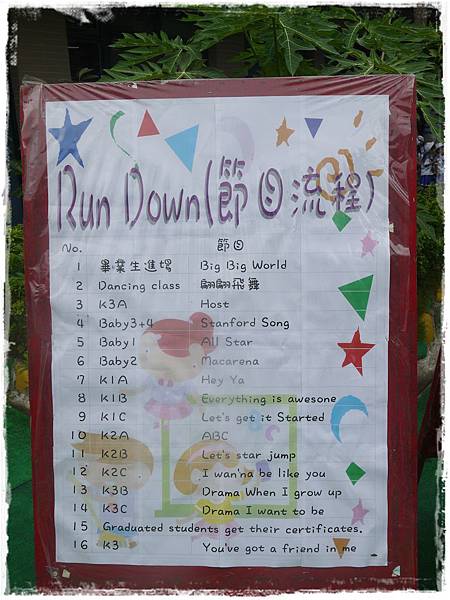 Run Down(節目流程)
No. 節目
1 畢業生進場 Big Big World
2 Dancing class 翩翩飛舞
3 K3A Host
4 Baby3+4 Stanford Song
5 Baby1 All Star
6 Baby2 Macarena
7 K1A Hey Ya
8 K1B Everything is awesome
9 K1C Let's get it Started
10 K2A ABC
11 K2B Let's star jump
12 K2C I wan'na be like you
13 K3B Drama When I grow up
14 K3C Drama I want to be
15 Graduated students get their certificates.
16 K3 You've got a friend in me